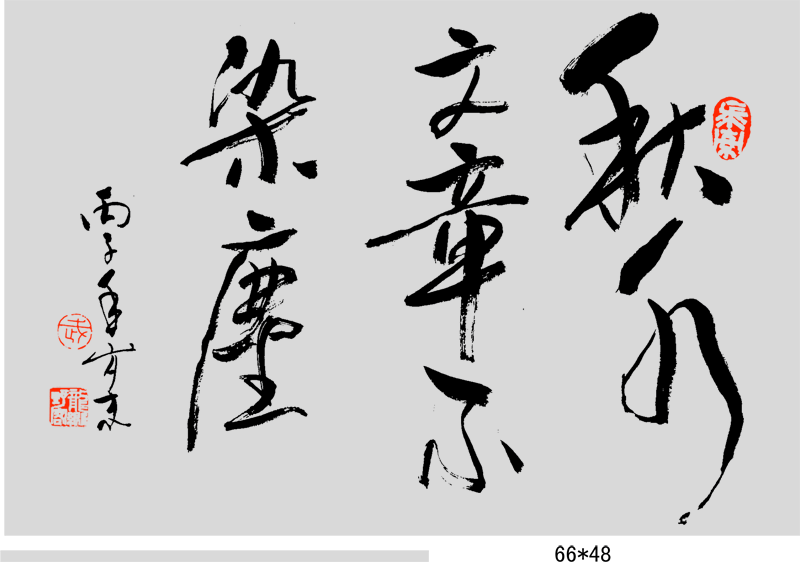 秋水
文章不
染尘
丙子年
66*48